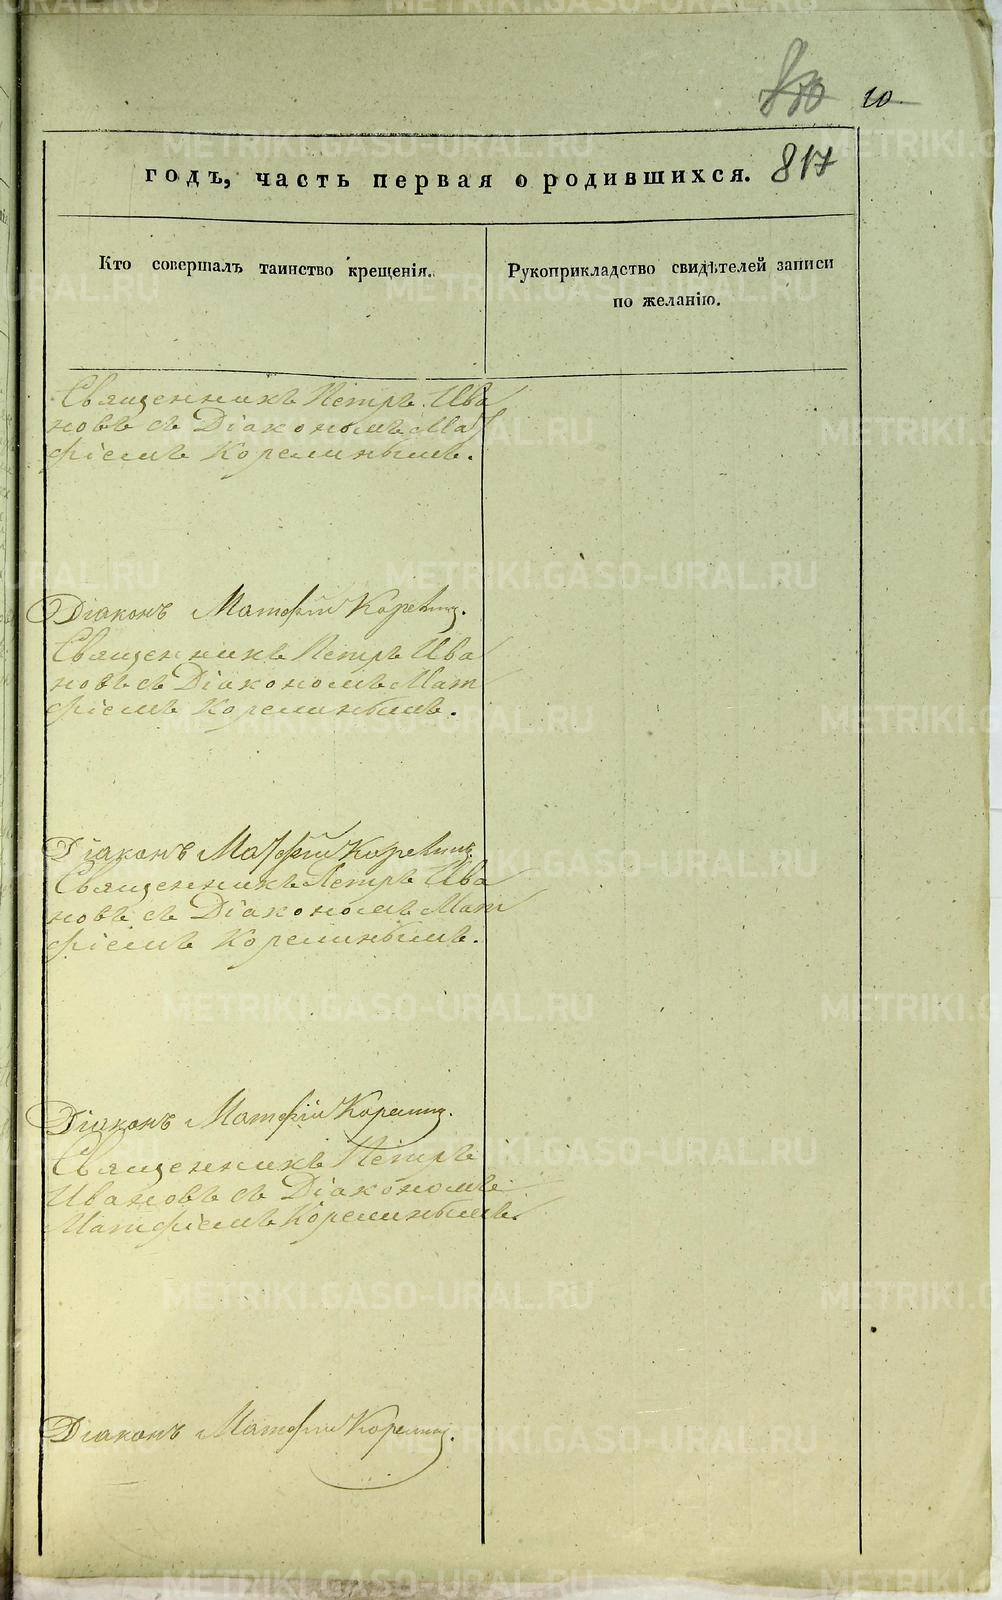 10
817
годъ, часть первая о родившихся.
Кто совершалъ таинство крещенія.
Рукоприкладство свидѣтелей записи
по желанію.
Священникъ Петръ Ива
новъ съ Діакономъ Мат
фіемъ Корелинымъ.
Діаконъ Матфій Корелинъ.
Священникъ Петръ Ива
новъ съ Діакономъ Мат
фіемъ Корелинымъ.
Діаконъ Матфій Корелинъ.
Священникъ Петръ Ива
новъ съ Діакономъ Мат
фіемъ Корелинымъ.
Діаконъ Матфій Корелинъ.
Священникъ Петръ
Ивановъ съ Діакономъ
Матфіемъ Корелинымъ.
Діаконъ Матфій Корелинъ.
METRIKI.GASO-URAL.RU